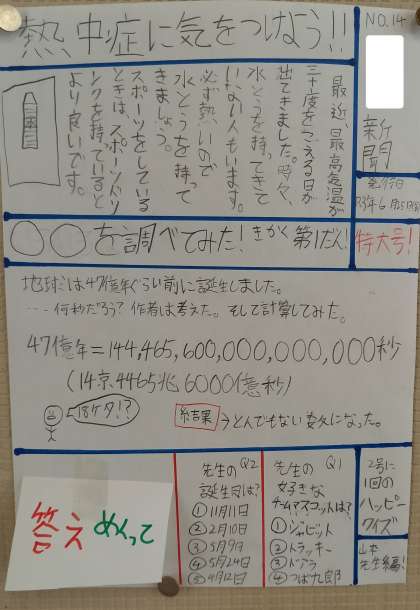 熱、中症に気をつけよう!!
NO.14
新聞
発行日
特大号!
最近、最高気温が
三十度をこえる日が
出てきました。時々、
水とうを持ってきて
いない人もいます。
必ず熱いので
水とうを持って
きましょう。
スポーツをしている
ときは、スポーツドリ
ンクを持っていると
より良いです。
〇〇を調べてみた! きかく第1だん!
地球は47億年ぐらい前に誕生しました。
…何秒だろう?作者は考えた。そして計算してみた。
47億年=144,465,600,000,000,000秒
(14京4465兆6000億秒)
18ケタ!?
結果→とんでもない数になった。
2号に
1回の
ハッピー
クイズ
山本
先生編!
Q1
先生の
好きな
チームマスコットは?
①ジャビット
②トラッキー
③ドアラ
④つば九郎
Q2
先生の
誕生日は?
①11月11日
②2月10日
③5月9日
④5月24日
⑤4月12日
答え
めくって